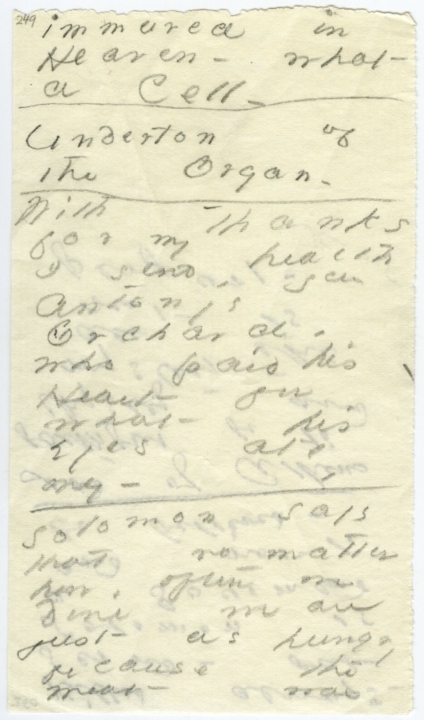 249
immured in
Heaven - what
a Cell -
Undertow of
the Organ -
With thanks
for my health
I send you
Antony's
Orchard,
who paid his
Heart for
what his
Eyes ate,
only -
Solomon says
that no matter
how often we
Dine we are
just as hungry
because the
meat was